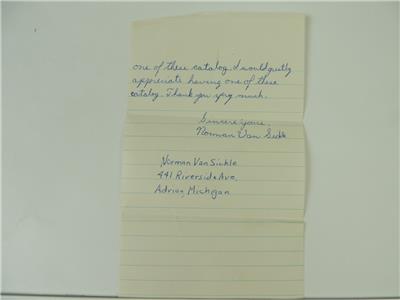 one of these catalog. I would gretly
appreciate having one of these
catalog. Thank you very much.
Sincere yours,
Norman Van Sickle
Norman Van Sickle
441 Riverside Ave.
Adrian, Michigan